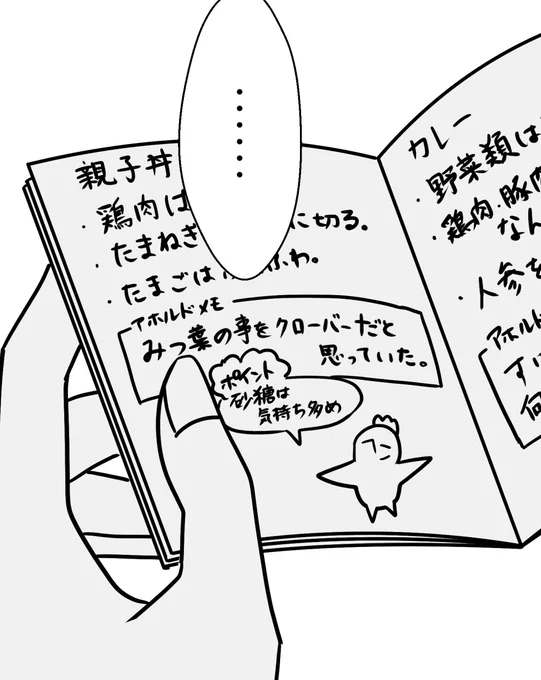 ・・・・・・
親子丼
・鶏肉は
たまねぎ に切る。
・たまごは ふわ。
アホルドメモ
みつ葉の事をクローバーだと
思っていた。
ポイント
砂糖は
気持ち多め
カレー
・野菜類は
・鶏肉、豚肉
なん
・人参を
アホルド
すけ
何